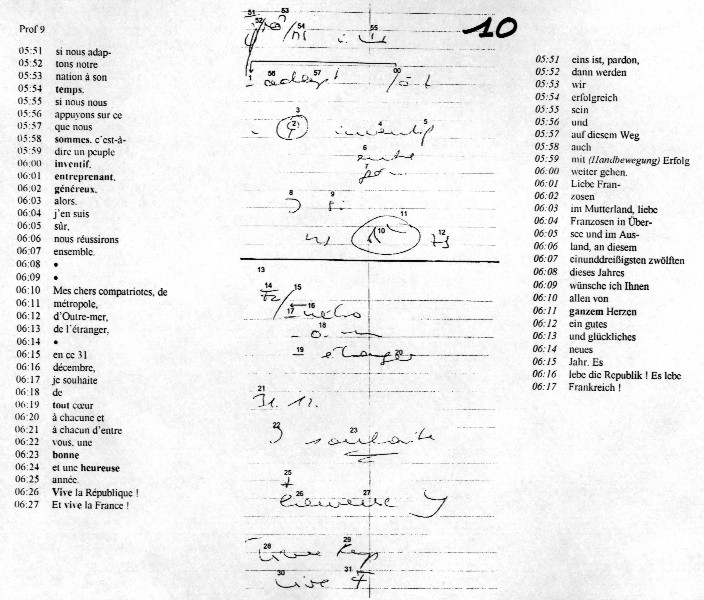 10
Prof 9
05:51 si nous adap-
05:52 tons notre
05:53 nation à son
05:54 temps.
05:55 si nous nous
05:56 appuyons sur ce
05:57 que nous
05:58 sommes, c'est-à-
05:59 dire un peuple
06:00 inventif.
06:01 entreprenant,
06:02 généreux.
06:03 alors.
06:04 j'en suis
06:05 sûr,
06:06 nous réussirons
06:07 ensemble.
06:08 •
06:09 •
06:10 Mes chers compatriotes, de
06:11 métropole,
06:12 d'Outre-mer,
06:13 de l'étranger,
06:14 •
06:15 en ce 31
06:16 décembre,
06:17 je souhaite
06:18 de
06:19 tout cœur
06:20 à chacune et
06:21 à chacun d'entre
06:22 vous, une
06:23 bonne
06:24 et une heureuse
06:25 année.
06:26 Vive la République !
06:27 Et vive la France !
51 53
52 54
55
1 56 57 00
3
2 4 5
6
7
8 9
10 11 12
13
14 15
17 16
18
19 20
étranger
21
31. 12.
22 23
souhaite
25
+
26 27
heureuse
28 29
30 31
vive F
05:51 eins ist, pardon,
05:52 dann werden
05:53 wir
05:54 erfolgreich
05:55 sein
05:56 und
05:57 auf diesem Weg
05:58 auch
05:59 mit (Handbewegung) Erfolg
06:00 weiter gehen.
06:01 Liebe Fran-
06:02 zosen
06:03 im Mutterland, liebe
06:04 Franzosen in Über-
06:05 see und im Aus-
06:06 land, an diesem
06:07 einunddreißigsten zwölften
06:08 dieses Jahres
06:09 wünsche ich Ihnen
06:10 allen von
06:11 ganzem Herzen
06:12 ein gutes
06:13 und glückliches
06:14 neues
06:15 Jahr. Es
06:16 lebe die Republik ! Es lebe
06:17 Frankreich !